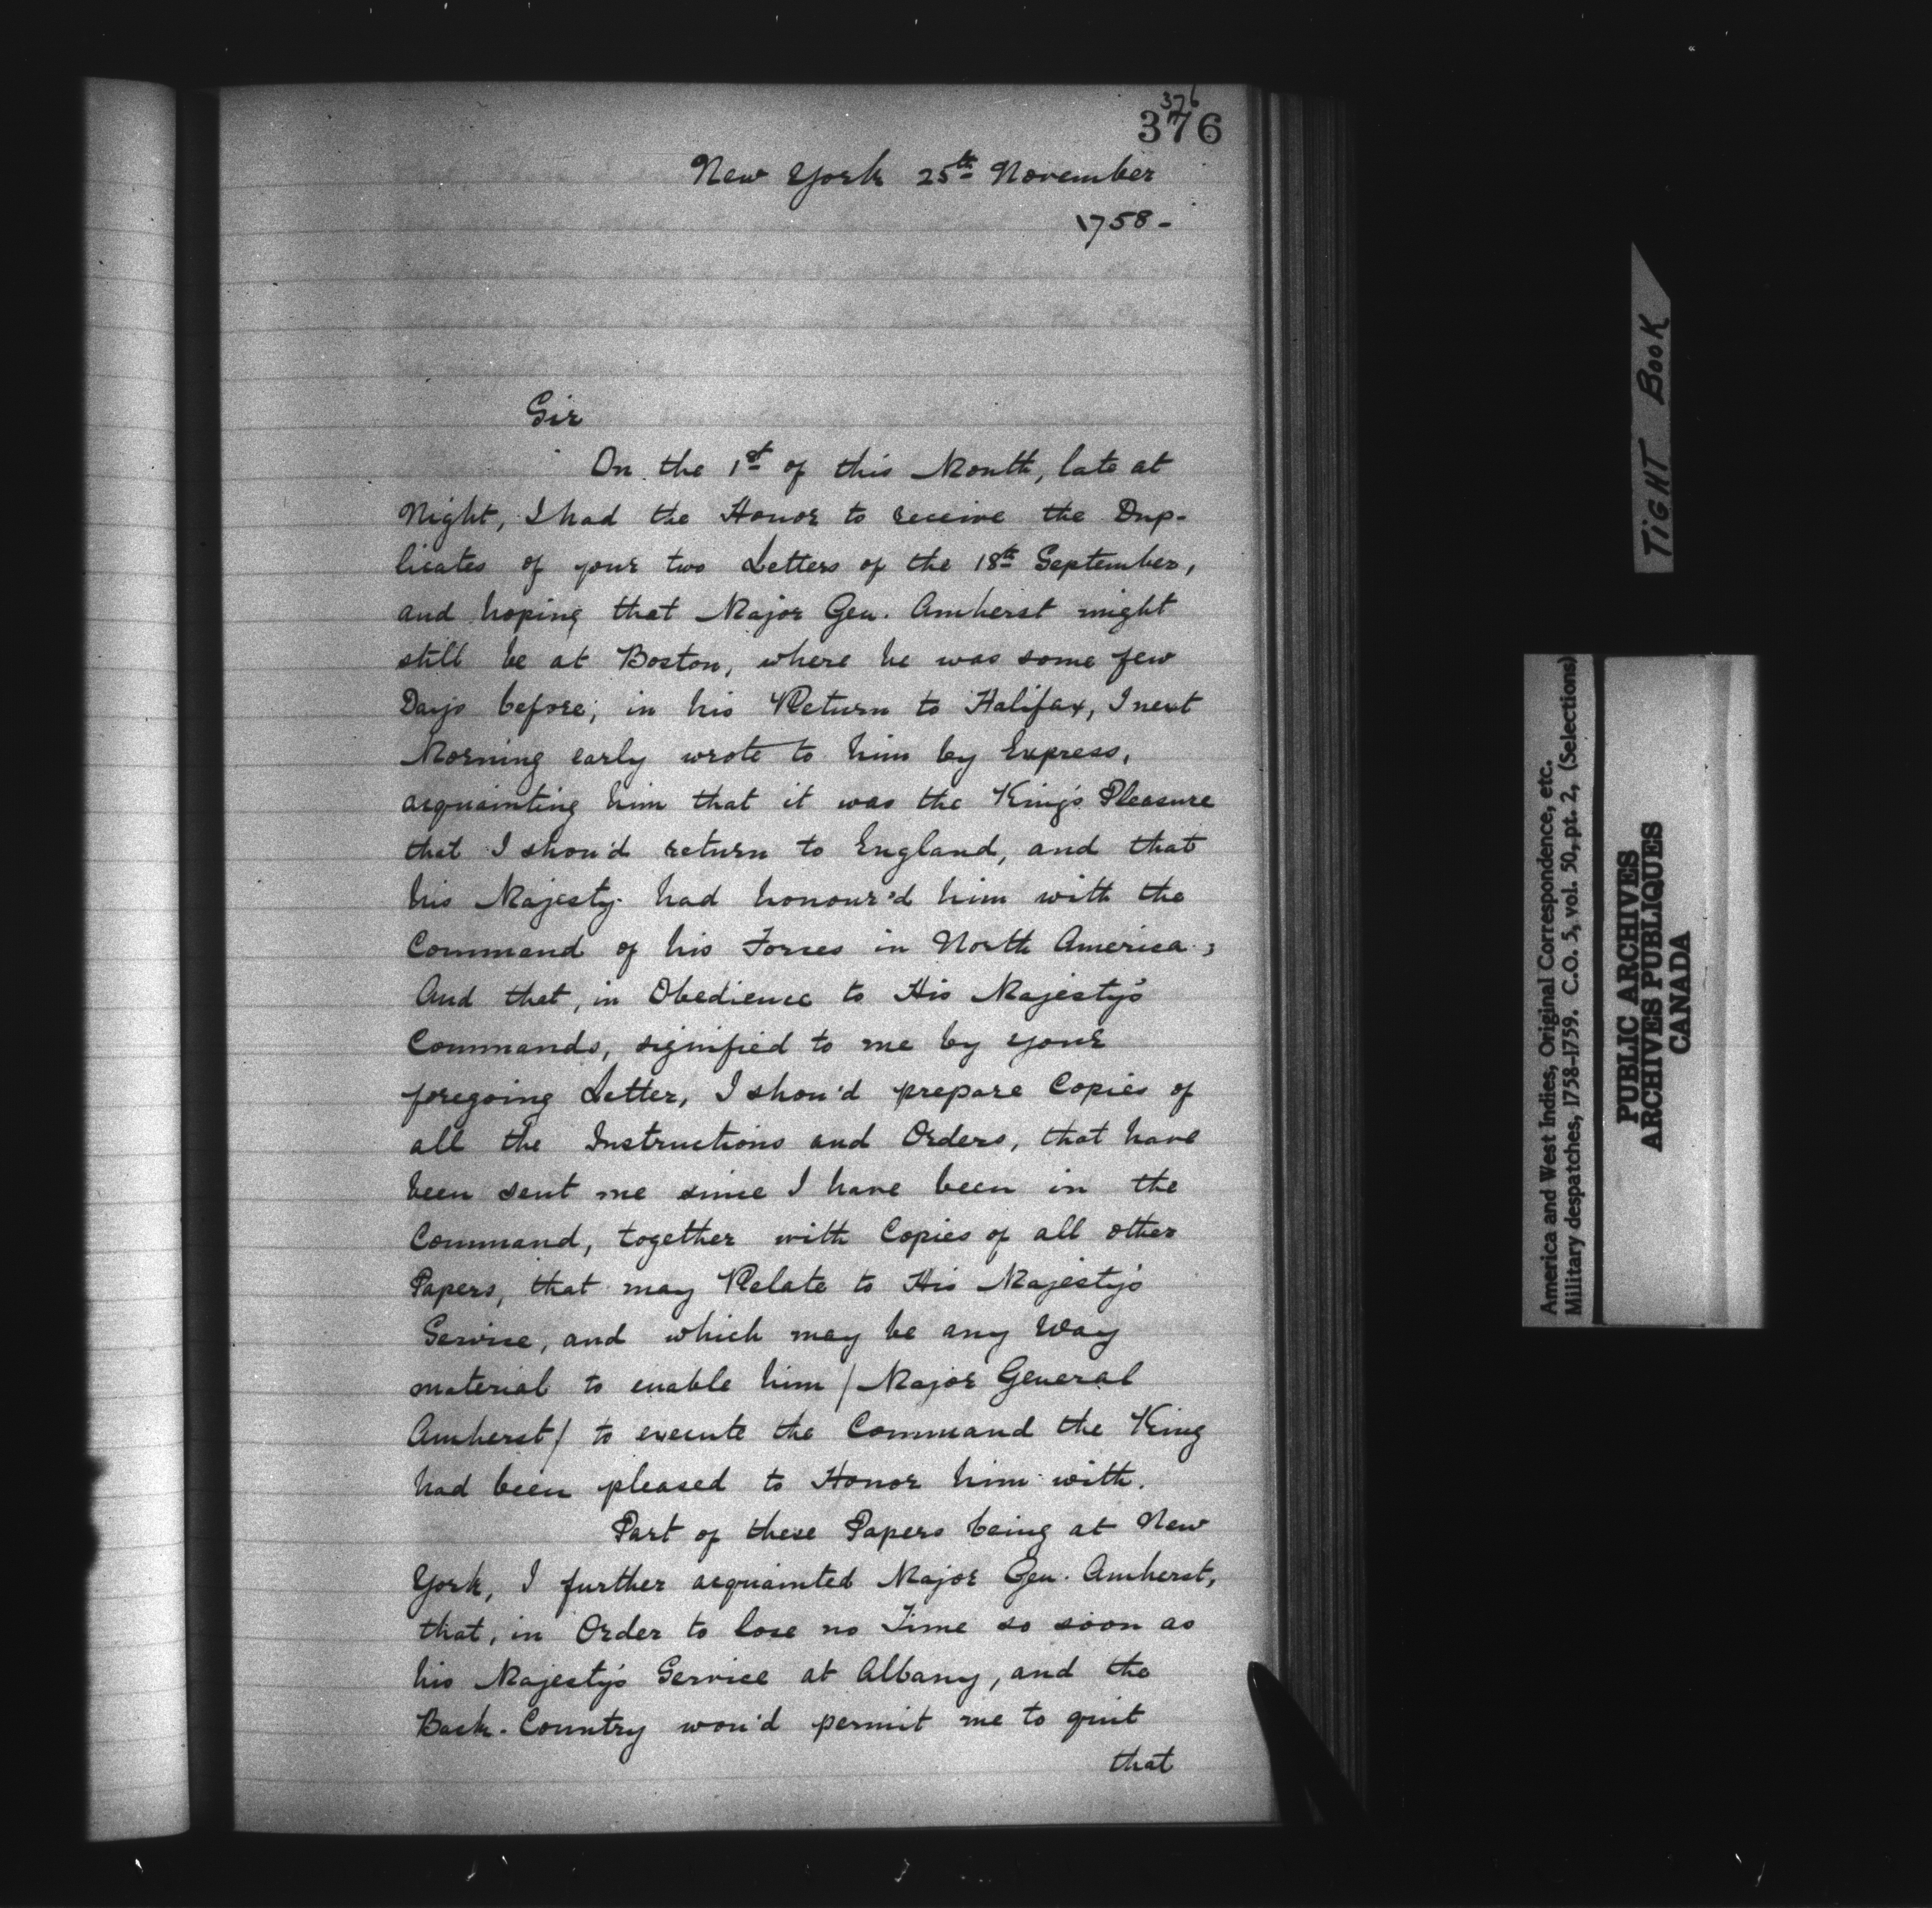 376
376
New York 25th November
1758-
Sir
On the 1st of this Month, late at
Night, I had the Honor to receive the Dup-
licates of your two Letters of the 18th September,
and hoping that Major Gen. Amherst might
still be at Boston, where he was some few
Days before, in his Return to Halifax, I next
Morning early wrote to him by Express,
acquainting him that it was the King's Pleasure
that I shou'd return to England, and that
his Majesty had honour'd him with the
Command of his Forces in North America;
And that, in Obedience to His Majesty's
Commands, signified to me by your
foregoing Letter, I shou'd prepare Copies of
all the Instructions and Orders, that have
been sent me since I have been in the
Command, together with Copies of all other
Papers, that may Relate to His Majesty's
Service, and which may be any Way
material to enable him / Major General
Amherst / to execute the Command the King
had been pleased to Honor him with.
Part of these Papers being at New
York, I further acquainted Major Gen. Amherst,
that, in Order to lose no Time so soon as
his Majesty's Service at Albany, and the
Back-Country wou'd permit me to quit
that
TiGHT BooK
America and West Indies, Original Correspondence, etc.
Military despatches, 1758-1759. C.O. 5, vol. 50, pt. 2, (Selections)
PUBLIC ARCHIVES
ARCHIVES PUBLIQUES
CANADA